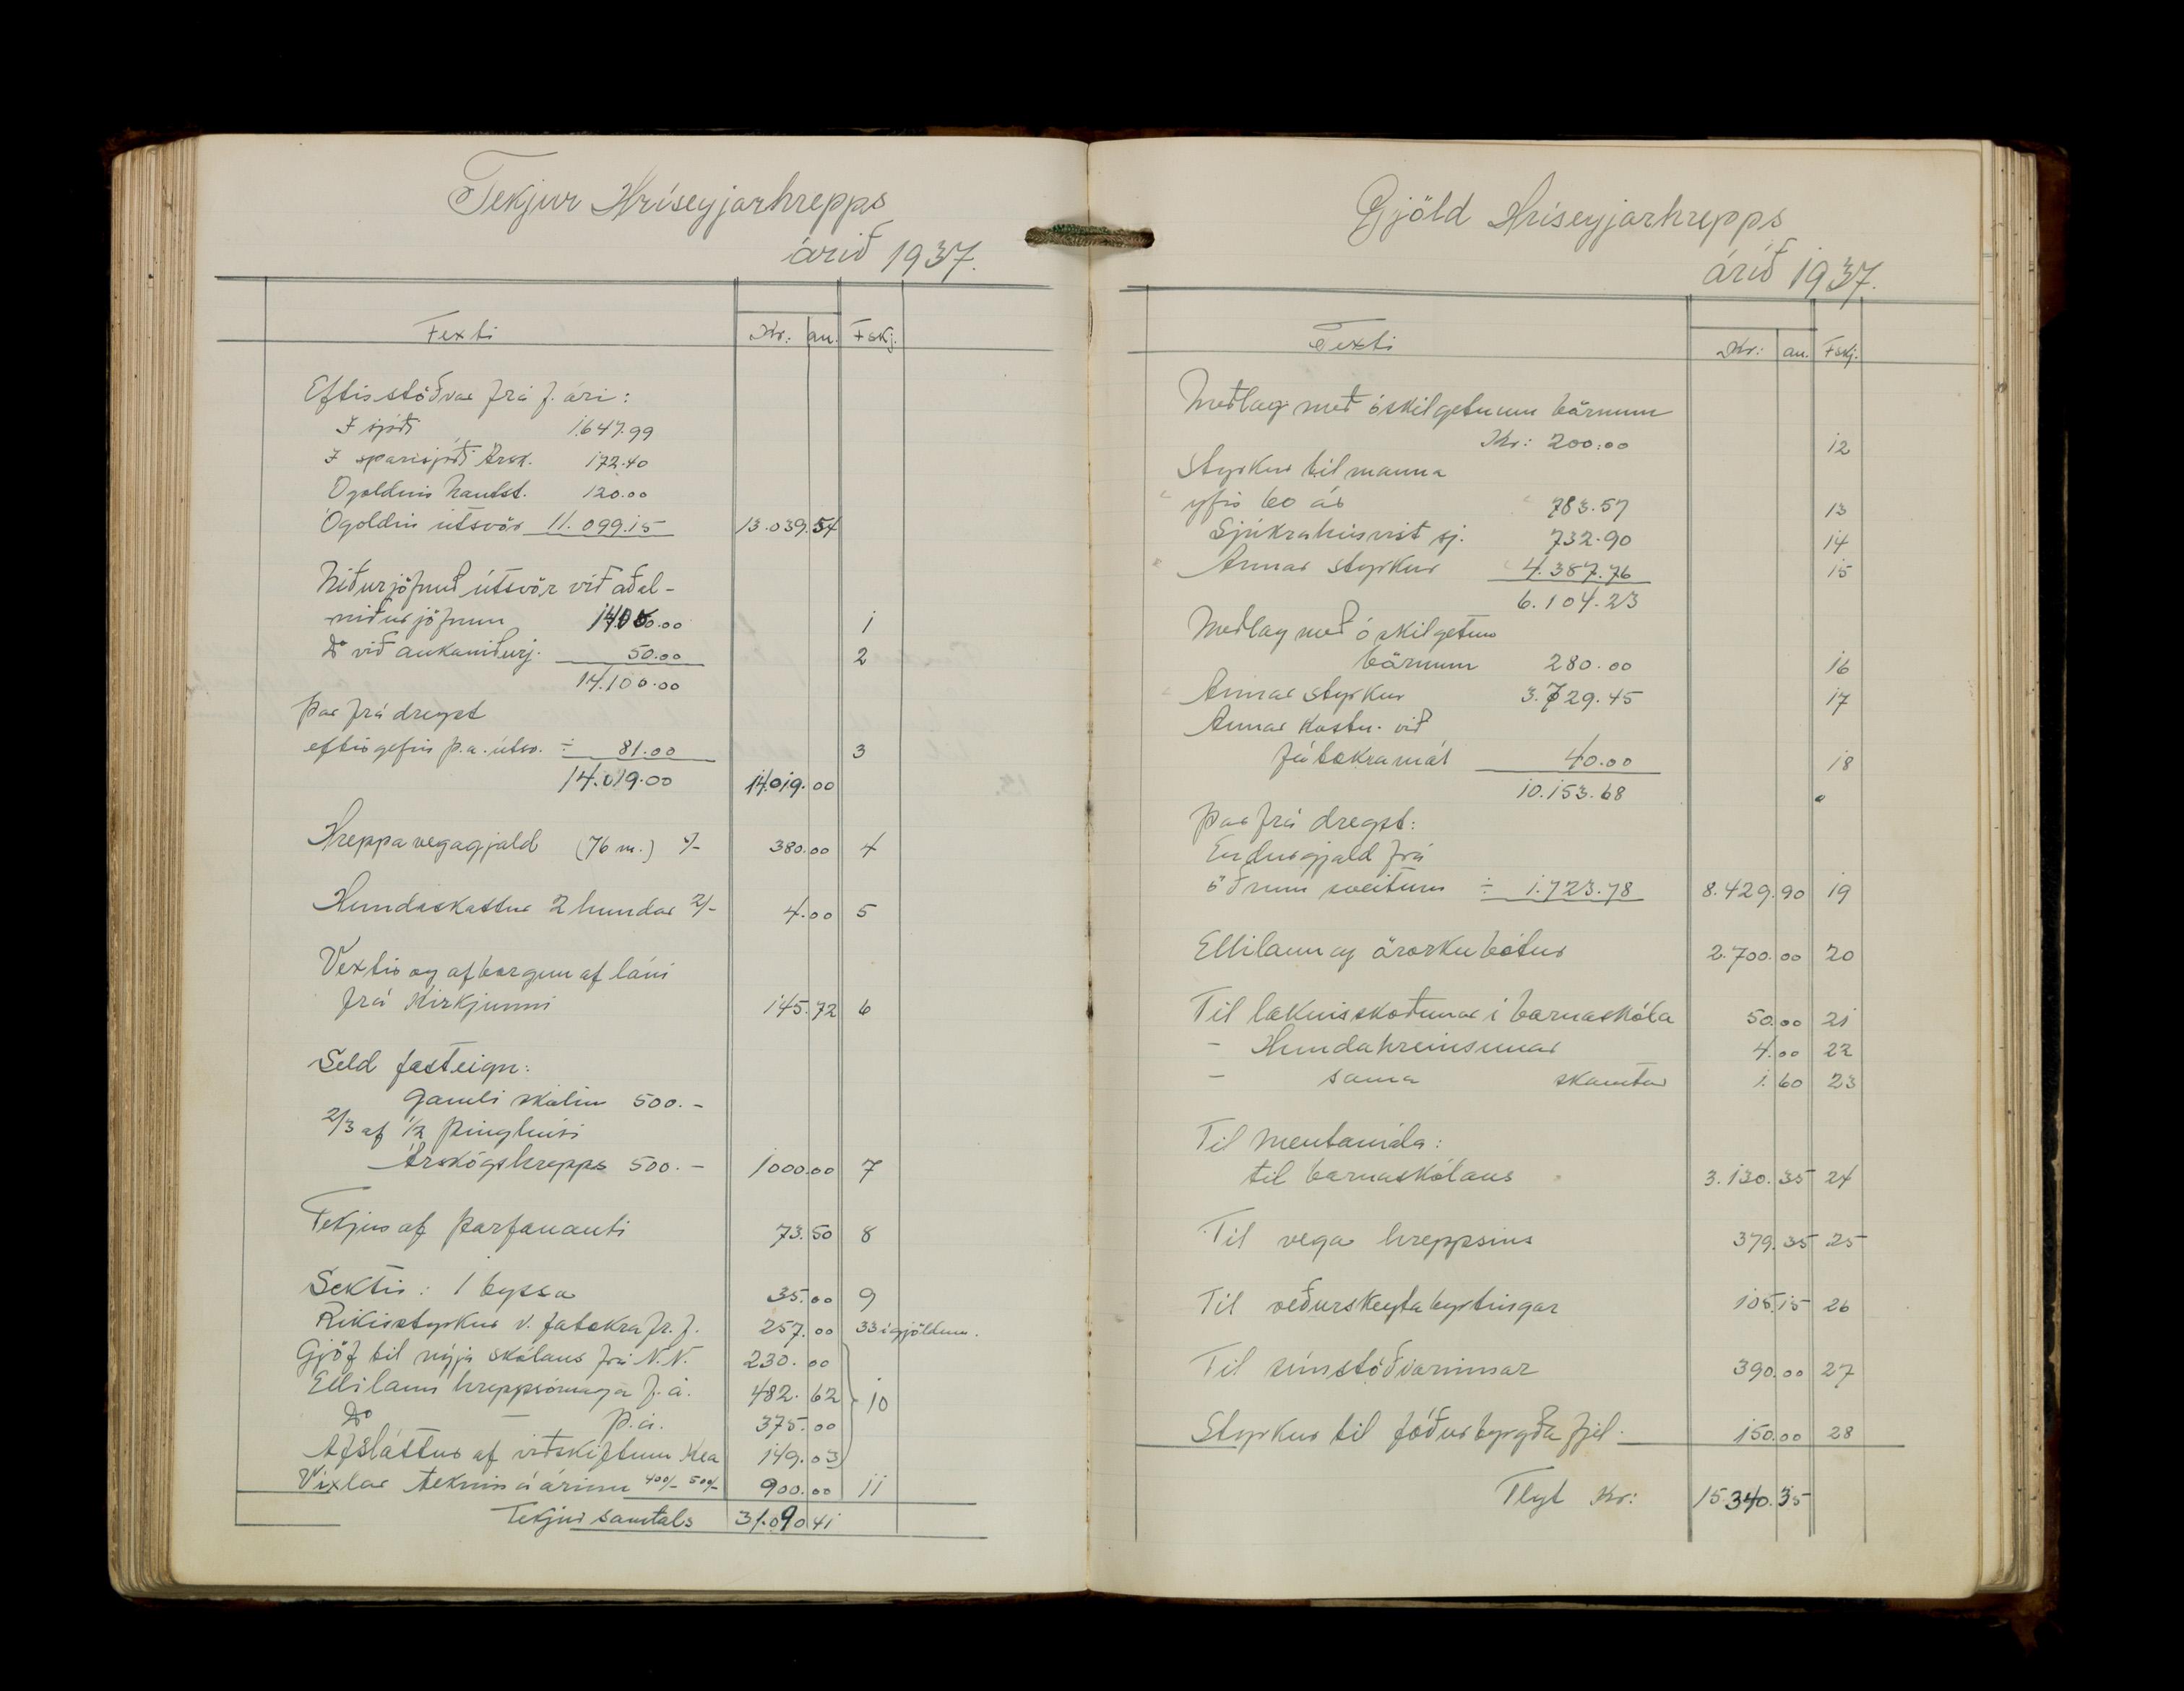 Tekjur Hríseyjarhrepps
árið 1937.
Texti Kr: au. Fskj.
Eftirstöðvar frá f. ári:
Í sjóði 1.647.99
Í sparisjóði Ársk. 172.40
Ógoldin 120.00
Ógoldin útsvör 11.099.15 13.039.54
Niðurjöfnuð útsvör við aðal-
niðurjöfnun 14.050.00 1
Do við aukaniðurj. 50.00 2
14.100.00
Þar frá dregst
eftirgefin þ.a. útsv. ÷ 81.00 3
14.019.00 14.019.00
Hreppavegagjald (76 m.) 5/- 380.00 4
Hundaskattur 2 hundar 2/- 4.00 5
Vextir og afborgun af láni
frá Kirkjunni 145.72 6
Seld fasteign:
Gamli skólinn 500.-
2/3 af 1/2 þinghúsi
Árskógshrepps 500.- 1000.00 7
Tekjur af þarfanauti 73.50 8
Sektir: 1 byssa 35.00 9
Ríkisstyrkur v. fátækrafr.f. 257.00 33 í gjöldum.
Gjöf til nýja skólans frá N.N. 230.00
Ellilaun hreppsómaga f.á. 482.62 10
Do — þ.á. 375.00
Afsláttur af viðskiftum Kea 149.03
Víxlar teknir á árinu 400/- 500/- 900.00 11
Tekjur samtals 31.090 41
Gjöld Hríseyjarhrepps
árið 1937.
Texti Kr: au. Fskj.
Meðlag með óskilgetnum börnum
Kr: 200.00 12
Styrkur til manna
" yfir 60 ár " 783.57 13
Sjúkrahúsvist sj. 732.90 14
" Annar styrkur " 4.387.76 15
6.104.23
Meðlag með óskilgetnum
börnum 280.00 16
" Annar styrkur 3.729.45 17
Annar kostn. við
fátækramál 40.00 18
10.153.68
Þar frá dregst:
Endurgjald frá
öðrum sveitum ÷ 1.723.78 8.429.90 19
Ellilaun og örorkubætur 2.700.00 20
Til læknisskoðunar í barnaskóla 50.00 21
- Hundahreinsunar 4.00 22
- sama skamtar 1.60 23
Til mentamála:
til barnaskólans 3.130.35 24
Til vega hreppsins 379.35 25
Til veðurskeytabirtingar 105.15 26
Til símstöðvarinnar 390.00 27
Styrkur til fóðurbyrgðafjel. 150.00 28
Flyt Kr: 15.340.35